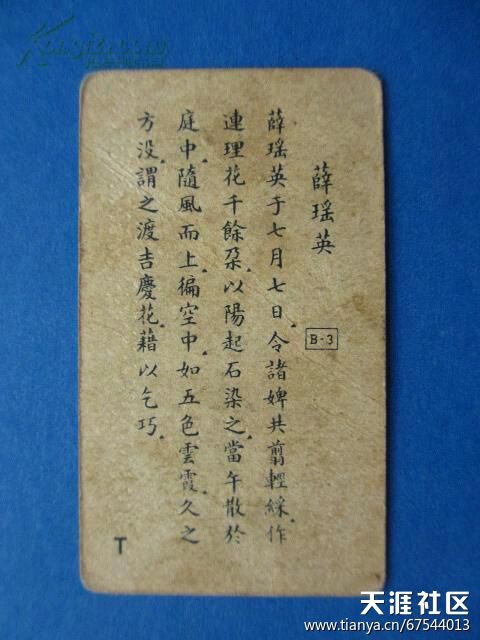 薛瑶英
B-3
薛瑶英于七月七日.令諸婢共剪輕綵.作
連理花千餘朶.以陽起石染之.當午散於
庭中.隨風而上.徧空中.如五色雲霞.久之
方没.謂之渡吉慶花.藉以乞巧.
T
天涯社区
www.tianya.cn/67544013